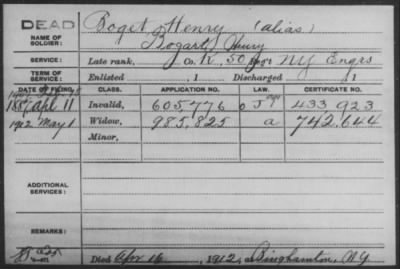 DEAD
Boget, Henry (alias)
NAME OF SOLDIER: Bogart, Henry
SERVICE: Late rank, Co. K, 50 Reg't NY Engrs
TERM OF SERVICE: Enlisted , 1 Discharged , 1
DATE OF FILING. CLASS. APPLICATION NO. LAW. CERTIFICATE NO.
Apl 11 Invalid, 605,776 433,923
1912 May 1 Widow, 985,825 a 742,644
Minor,
ADDITIONAL SERVICES:
REMARKS:
Died Apr 16, 1912, at Binghamton, NY